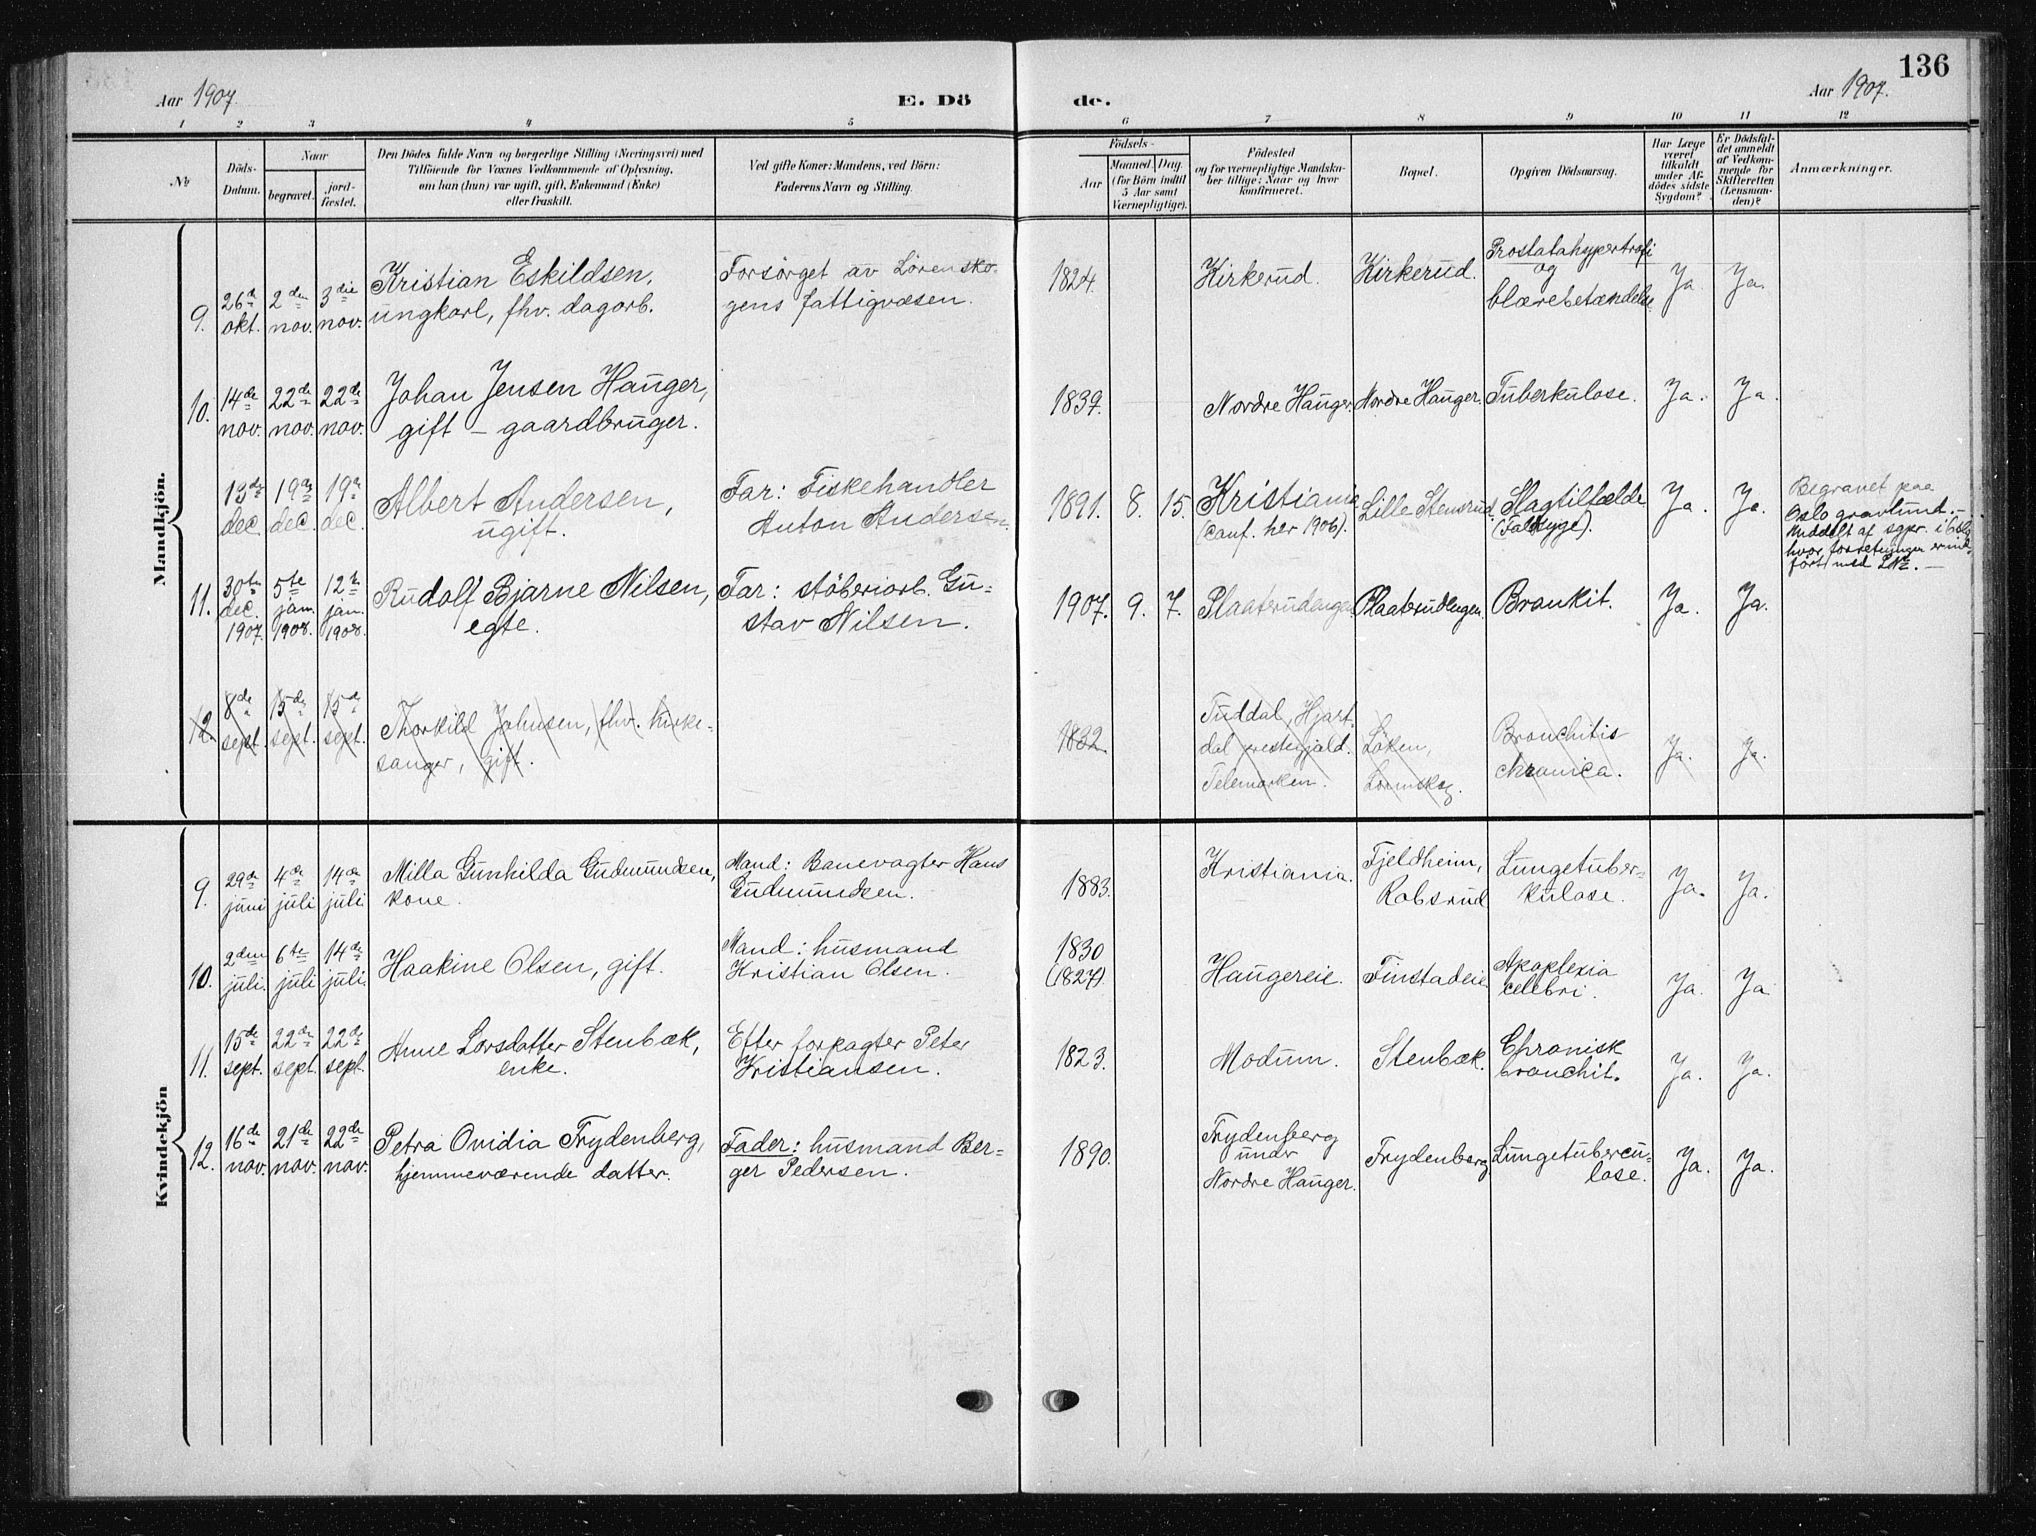 136
Aar 1907.
E. Dö
de.
Aar 1907.
1 2 3 4 5 6 7 8 9 10 11 12
No
Döds-
Datum.
Naar
begravet.
jord-
fæstet.
Den Dödes fulde Navn og borgerlige Stilling (Næringsvei) med
Tilföiende for Voxnes Vedkommende af Oplysning,
om han (hun) var ugift, gift, Enkemand (Enke)
eller fraskilt.
Ved gifte Koner: Mandens, ved Börn:
Faderens Navn og Stilling.
Födsels-
Aar
Maaned. Dag.
(for Börn indtil
5 Aar samt
Værnepligtige).
Födested
og for værnepligtige Mandska-
ber tillige: Naar og hvor
konfirmeret.
Bopæl.
Opgiven Dödsaarsag.
Har Læge
været
tilkaldt
under Af-
dödes sidste
Sygdom?
Er Dödsfal-
det anmeldt
af Vedkom-
mende for
Skifteretten
(Lensman-
den)?
Anmærkninger.
Mandkjön.
9. 26de okt. 2den nov. 3die nov.
Kristian Eskildsen,
ungkarl, fhv. dagarb.
Forsörget av Lörensko-
gens fattigvæsen.
1824. Kirkerud. Kirkerud.
Prostatahypertrofi
og
blærebetændelse
Ja. Ja.
10. 14de nov. 22de nov. 22de nov.
Johan Jensen Hauger,
gift – gaardbruger.
1839. Nordre Hauger. Nordre Hauger. Tuberkulose. Ja. Ja.
13de dec. 19de dec. 19de dec.
Albert Andersen,
ugift.
Far: Fiskehandler
Anton Andersen.
1891. 8. 15. Kristiania
(Conf. her 1906).
Lille Stensrud. Slagtilfælde
(Faldsyge).
Ja. Ja.
Begravet paa
Oslo gravlund.–
Meddelt af sgpr. i Oslo
hvor forretningen er ind-
fört med
11. 30te dec. 1907. 5te jan. 1908. 12te jan. 1908.
Rudolf Bjarne Nilsen,
egte.
Far: stöberiarb. Gu-
stav Nilsen.
1907. 9. 7. Plaaterudengen Plaaterudengen. Bronkit. Ja. Ja.
12. 8de sept. 15de sept. 15de sept.
Thorkild Johnsen, fhv. kirke-
sanger, gift.
1832.
Tuddal, Hjart-
dal prestegjeld.
Telemarken.
Löken,
Lörenskog.
Bronchitis
chronica.
Ja. Ja.
Kvindekjön
9. 29de juni 4de juli 14de juli
Milla Gunhilda Gudmundsen,
kone.
Mand: Banevagter Hans
Gudmundsen.
1883. Kristiania.
Fjeldheim,
Robsrud
Lungetuber-
kulose.
Ja. Ja.
10. 2den juli. 6te juli 14de juli.
Haakine Olsen, gift.
Mand: husmand
Kristian Olsen.
1830
(1827)
Haugereie. Finstadeie
Apoplexia
celebri.
Ja. Ja
11. 15de sept. 22de sept. 22de sept.
Anne Larsdatter Stenbæk,
enke.
Efter forpagter Peter
Kristiansen.
1823. Modum. Stenbæk.
Chronisk
bronchit.
Ja. Ja.
12. 16de nov. 21de nov. 22de nov.
Petra Ovidia Frydenberg,
hjemmeværende datter.
Fader: husmand Ber-
ger Pedersen.
1890.
Frydenberg
under
Nordre Hauger.
Frydenberg
Lungetubercu-
lose.
Ja. Ja.